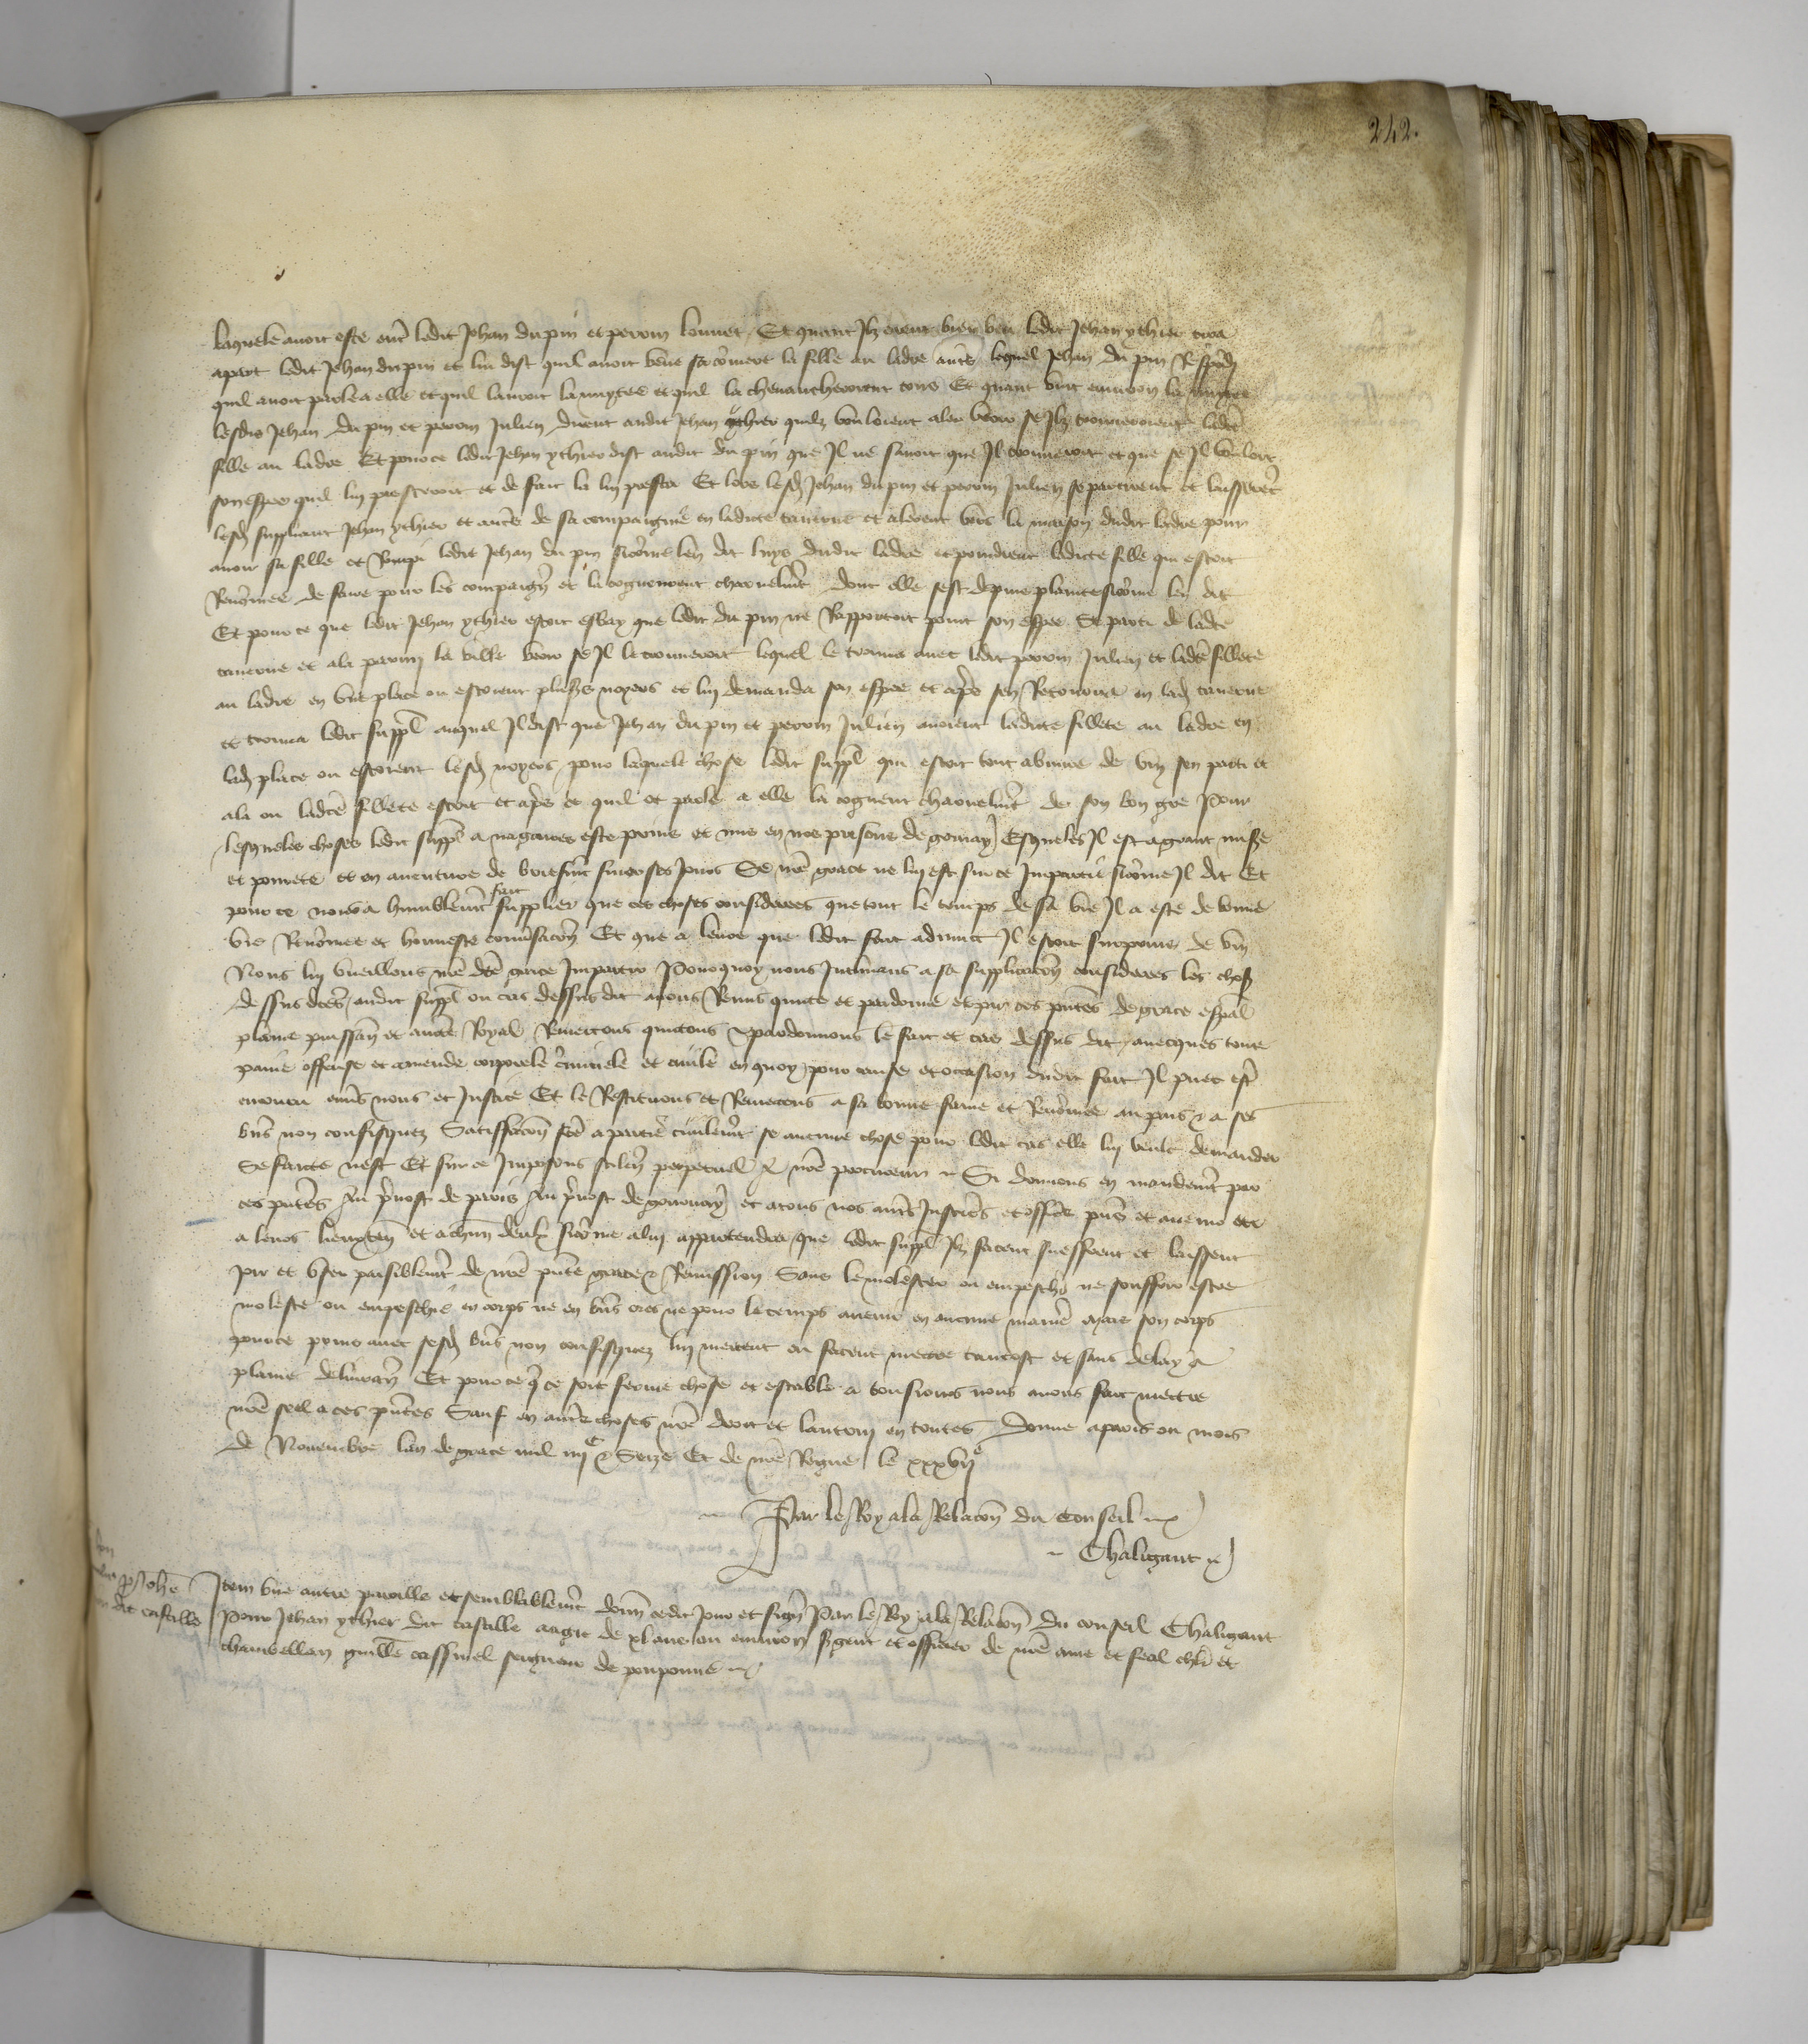 242.
laquele avoit esté entr ledit Jehan du pin et perrin Et quant Ilz eurent bien beu ledit Jehan ythier tira
apart ledit Jehan du pin et lui dist quil avoit veue sa comere la fille au ladre lequel Jehan du pin Respondi
quil avoit parlé a elle et quil lauroit la nuytee et quil la chevaucheroient tous Et quant vint environ la nuytee
lesdis Jehan du pin et perrin Julien dirent audit Jehan ythier quilz vouloient aler veoir se Ilz trouveroient ladicte
fille au ladre Et pource ledit Jehan ythier dist audit du pin que Il ne savoit que Il trouveroit et que se Il vouloit
son espee quil lui presteroit et de fait la lui presta Et lors lesd Jehan du pin et perrin Julien se partirent et laisserent
lesd suppliant Jehan ythier et autres de sa compaignie en ladicte taverne et alerent vers la maison dudit ladre pour
avoir sa fille et Rompi ledit Jehan du pin sicome len dit luys dudit ladre et prindrent ladicte fille qui estoit
Renomee de faire pour les compaignons et la cognurent charnelmt dont elle sest depuis plainte sicome len dit
Et pource que ledit Jehan ythier estoit esbay que ledit du pin ne Rapportoit point son espee Se parti de ladicte
taverne et ala parmi la ville veoir se Il le trouveroit lequel le trouva avec ledit perrin Julien et ladicte fillete
au ladre en une place ou estoient plusrs noyers et lui demanda son espee et apres sen Retourna en lad taverne
et trouva ledit suppl auquel Il dist que Jehan du pin et perrin Julien avoient ladicte fillete au ladre en
lad place ou estoient lesd noyers, pour laquele chose ledit suppl qui estoit tout abuvré de vin sen parti et
ala ou ladicte fillete estoit et apres ce quil ot parlé a elle la cognut charnelmt de son bon gré Pour
lesqueles choses ledit suppl a nagaires esté prins et mis en noz prisons de gornay Esqueles Il est a grant mise
et povreté et en aventure de briefmt finer ses jours Se nre grace ne lui est sur ce Impartie sicome Il dit Et
pource nous a humblemt fait supplier que ces choses considerees que tout le temps de sa vie Il a esté de bonne
vie Renomee et honneste conversacon Et que a leure que ledit fait advint Il estoit surprins de vin
Nous lui vueillons nre dicte grace Impartir Pourquoy nous Inclinans a sa supplicacon considerees les choses
dessus dictes, audit suppl ou cas dessus dit avons Remis quicté et pardonné et par ces pntes de grace espal
plaine puissance et auctorité Royal Remettons quictons & pardonnons le fait et cas dessus dit, avecques toute
paine offense et amende corporele criminele et civile en quoy pour cause et occasion dudit fait Il puet estre
encouru envers nous et Justice Et le Restituons et Remettons a sa bonne fame et Renomee au pais & a ses
biens non confisquez Satisfaction fcte a partie civilemt se aucune chose pour ledit cas elle lui veult demander
Se faicte nest Et sur ce Imposons silence perpetuel a nre procureur Si donnons en mandemt par
ces pntes Au prevost de paris Au prevost de gournay et a tous nos autres Justiciers et officiers pns et avenir ou
a leurs lieuxten et a chun deulx sicome a lui appartendra que ledit suppl Ilz facent sueffrent et laissent
joir et user paisiblemt de nre pnte grace & Remission Sans le molester ou empescher ne souffrir estre
molesté ou empeschié en corps ne en biens ores ne pour le temps avenir en aucune maniere mais son corps
pource prins avec sesd biens non confisquez lui mettent ou facent mettre tantost et sans delay a
plaine delivrance Et pource q ce soit ferme chose et estable a tousiours nous avons fait mettre
nre seel a ces pntes Sauf en autres choses nre droit et lautruy en toutes Donné a paris ou mois
de Novembre lan de grace mil iiijC & Seize Et de nre Regne le xxxvije
Par le Roy a la Relacon du Conseil
Chaligaut
p Johe
dit castille
Item une autre pareille et semblablemt donn cedit jour et sign Par le Roy a la Relacon du conseil Chaligaut
Pour Jehan ythier dit castille aagié de xl ans ou environ sgent et officier de nre amé et feal chlr et
chambellan guille cassinel seigneur de ponponne